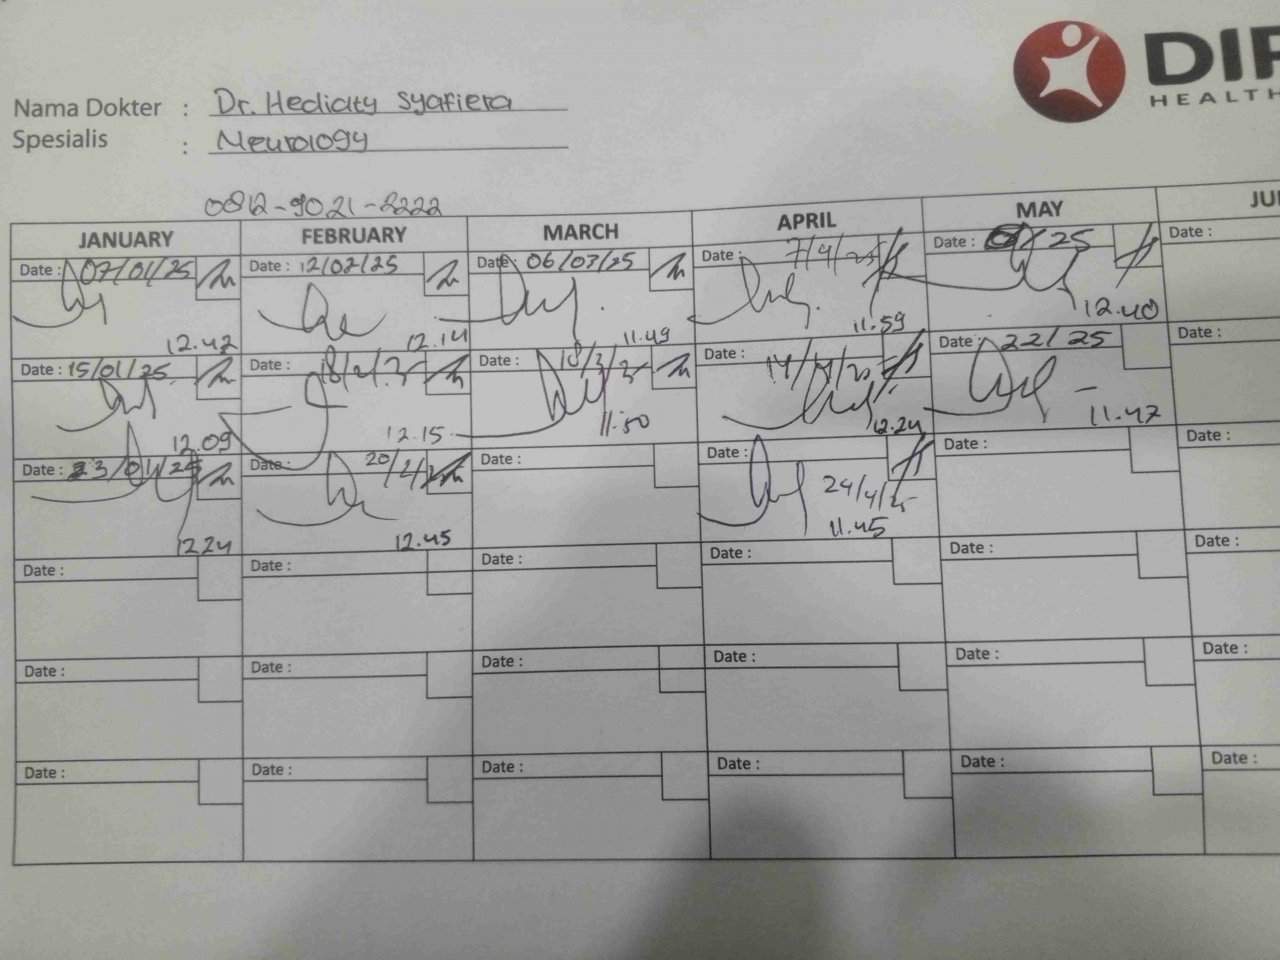 DIP
HEALTH
Nama Dokter : Dr. Hedicity Syafiera
Spesialis : Neurology
0812-9021-2222
JANUARY FEBRUARY MARCH APRIL MAY JU
Date : 07/01/25 Date : 12/02/25 Date : 06/03/25 Date : 7/4/25 Date : /25 Date :
12.42 12.14 11.49 11.59 12.40
Date : 15/01/25 Date : 18/2/ Date : 18/3/ Date : 14/4/25 Date : 22/25 Date :
12.09 12.15 11.50 12.24 11.47
Date : 23/01/25 Date : 20/2/ Date : Date : 24/4/25 Date : Date :
12.24 12.45 11.45
Date : Date : Date : Date : Date : Date :
Date : Date : Date : Date : Date : Date :
Date : Date : Date : Date : Date : Date :